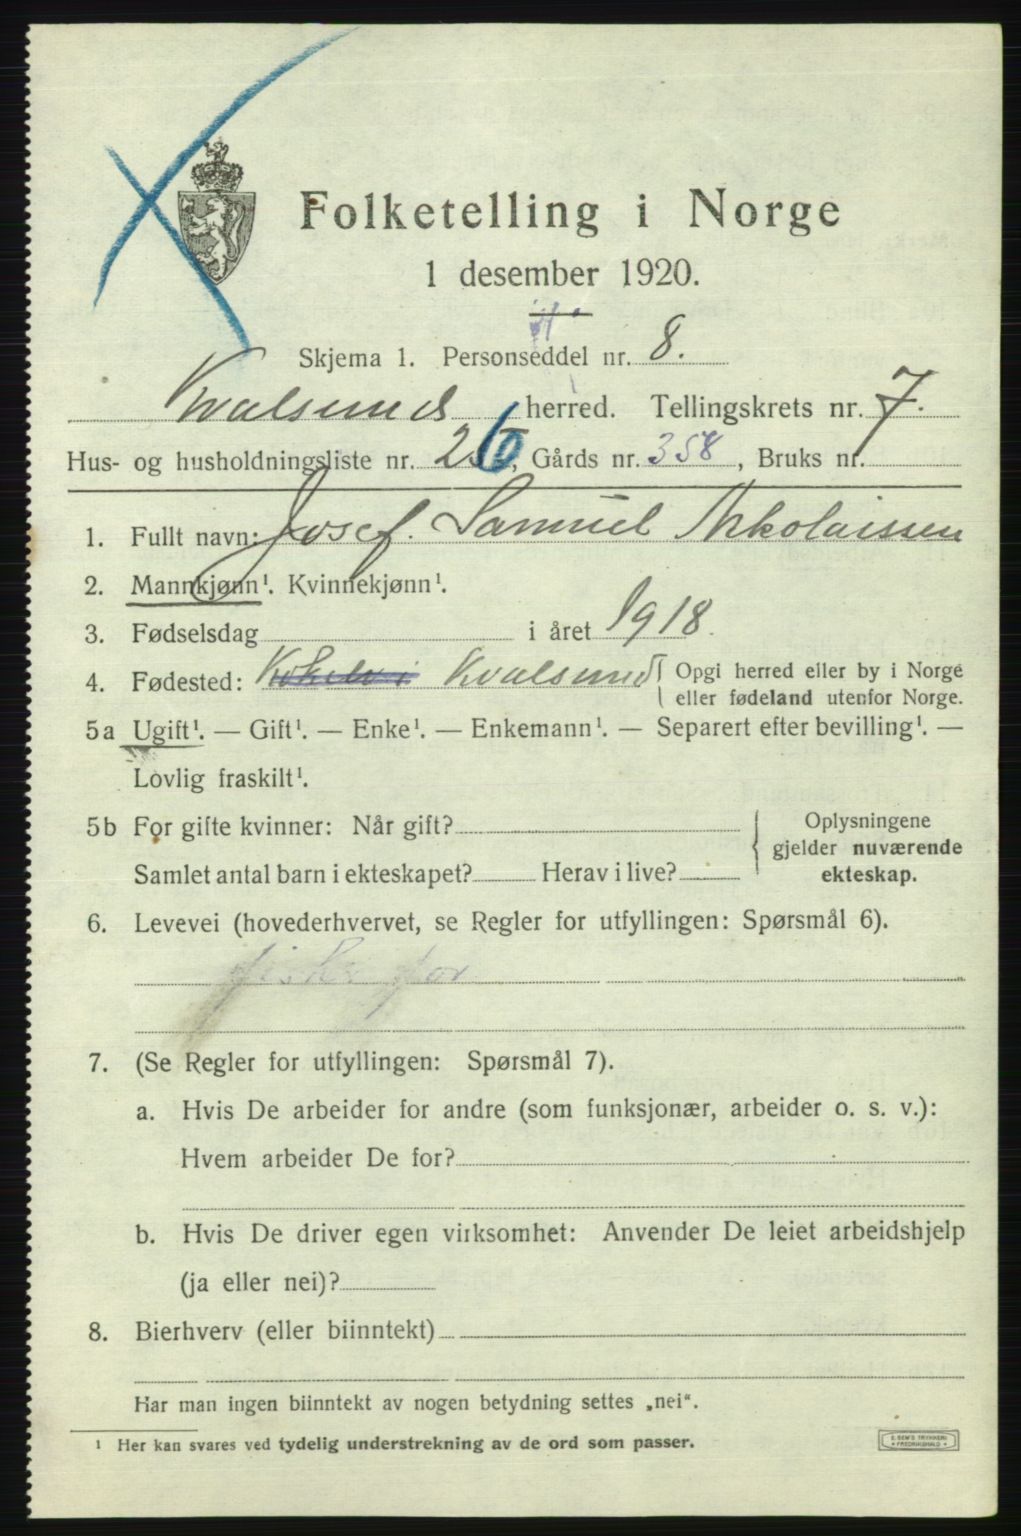 Folketelling i Norge
1 desember 1920.
Skjema 1. Personseddel nr. 8.
Kvalsund herred. Tellingskrets nr. 7.
Hus- og husholdningsliste nr. 26, Gårds nr. 358, Bruks nr.
1. Fullt navn: Josef. Samuel Nikolaissen
2. Mannkjønn¹. Kvinnekjønn¹.
3. Fødselsdag i året 1918.
4. Fødested: Kokelv i Kvalsund { Opgi herred eller by i Norge
eller fødeland utenfor Norge.
5a Ugift¹. — Gift¹. — Enke¹. — Enkemann¹. — Separert efter bevilling¹. —
Lovlig fraskilt¹.
5b For gifte kvinner: Når gift? Oplysningene
gjelder nuværende
Samlet antal barn i ekteskapet? Herav i live? ekteskap.
6. Levevei (hovederhvervet, se Regler for utfyllingen: Spørsmål 6).
fisker for
7. (Se Regler for utfyllingen: Spørsmål 7).
a. Hvis De arbeider for andre (som funksjonær, arbeider o. s. v.):
Hvem arbeider De for?
b. Hvis De driver egen virksomhet: Anvender De leiet arbeidshjelp
(ja eller nei)?
8. Bierhverv (eller biinntekt)
Har man ingen biinntekt av nogen betydning settes „nei".
¹ Her kan svares ved tydelig understrekning av de ord som passer.
E. SEM'S TRYKKERI
FREDRIKSHALD